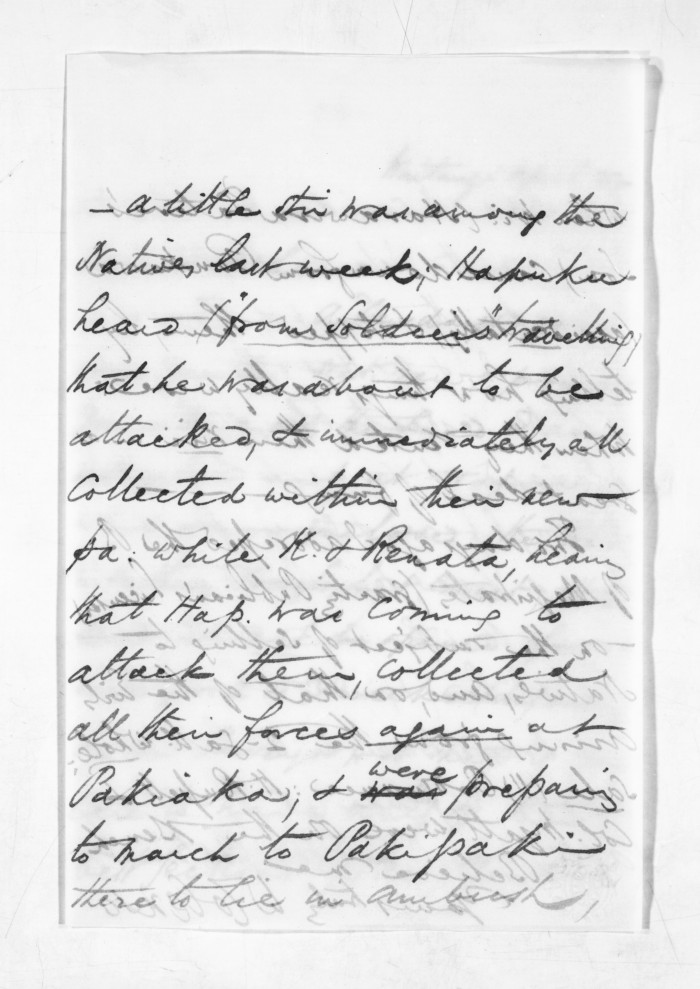 – a little stir was among the
Natives last week; Hapuku
heard ("from Soldiers" travelling)
that he was about to be
attacked, & immediately all
collected within their new
pa: while K. & Renata, hearing
that Hap. was coming to
attack them, collected
all their forces again at
Pakiaka; & were preparing
to march to Pakipaki
there to lie in ambush,